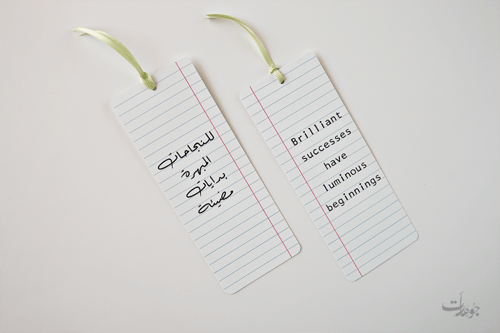 للنجاحات
المبهرة
بدايات
مضيئة
Brilliant
successes
have
luminous
beginnings